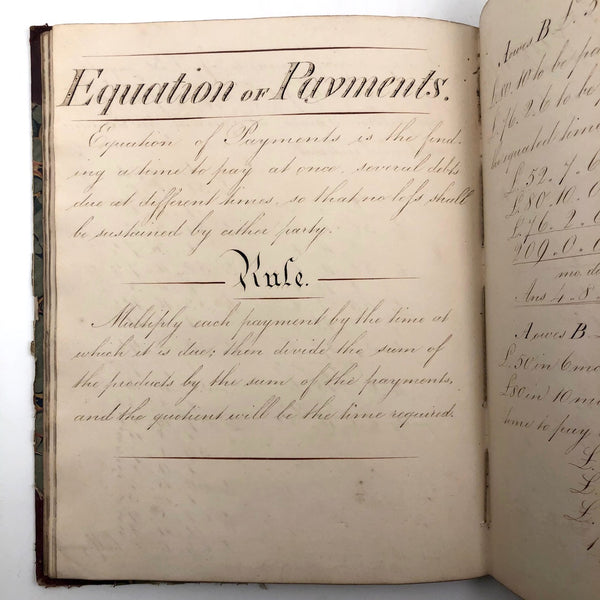 Equation of Payments.
Equation of Payments is the find-
ing a time to pay at once, several debts
due at different times, so that no loss shall
be sustained by either party.
Rule.
Multiply each payment by the time at
which it is due; then divide the sum of
the products by the sum of the payments,
and the quotient will be the time required.
A owes B £. 5
£80.10 to be pa
£.76.2.6 to be
equated time
£.52.7.6
£80.10.0
£76.2.6
209.0.0
mo. da
Ans 4.8.
A owes B
£.50 in 6 mo
£80 in 10 mo
time to pay
£.
£.
£.